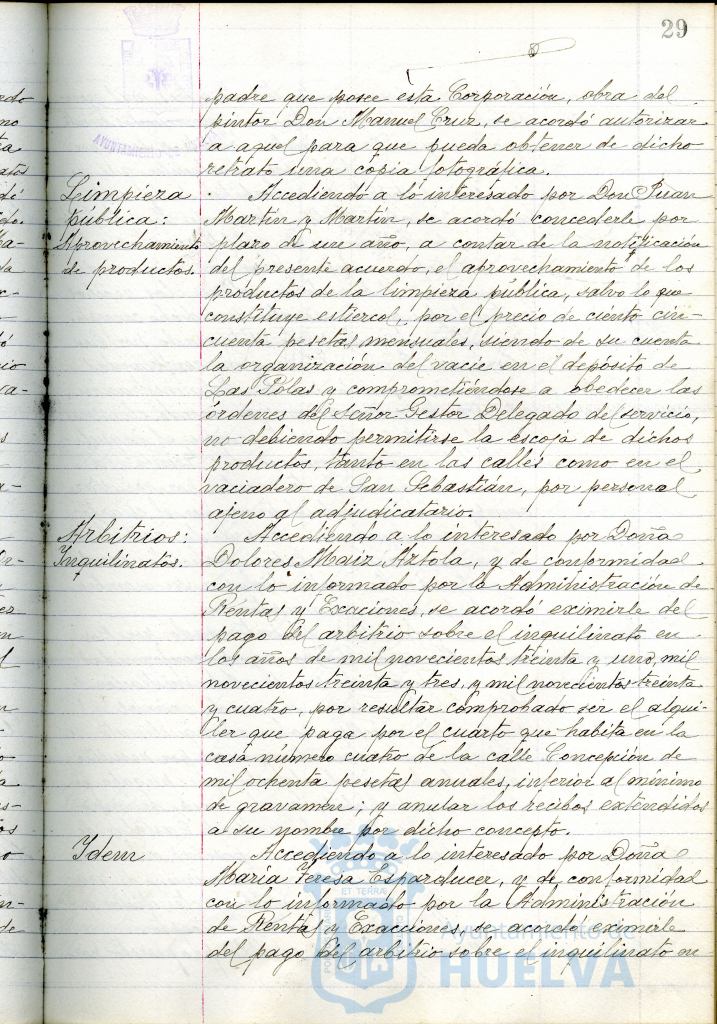 29
padre que posee esta Corporación, obra del
pintor Don Manuel Cruz, se acordó autorizar
a aquel para que pueda obtener de dicho
retrato una copia fotográfica.
Limpieza
pública:
Aprovechamiento
de productos.
Accediendo a lo interesado por Don Juan
Martín y Martín, se acordó concederle por
plazo de un año, a contar de la notificación
del presente acuerdo, el aprovechamiento de los
productos de la limpieza pública, salvo lo que
constituye estiercol, por el precio de ciento cin-
cuenta pesetas mensuales, siendo de su cuenta
la organización del vacie en el depósito de
Las Polas y comprometiéndose a obedecer las
órdenes del Señor Gestor Delegado del servicio,
no debiendo permitirse la escoja de dichos
productos, tanto en las calles como en el
vaciadero de San Sebastián, por personal
ajeno al adjudicatario.
Arbitrios:
Inquilinatos.
Accediendo a lo interesado por Doña
Dolores Maiz Aztola, y de conformidad
con lo informado por la Administración de
Rentas y Exacciones, se acordó eximirle del
pago del arbitrio sobre el inquilinato en
los años de mil novecientos treinta y uno, mil
novecientos treinta y tres, y mil novecientos treinta
y cuatro, por resultar comprobado ser el alqui-
ler que paga por el cuarto que habita en la
casa número cuatro de la calle Concepción de
mil ochenta pesetas anuales, inferior al mínimo
de gravamen; y anular los recibos extendidos
a su nombre por dicho concepto.
Ydem
Accediendo a lo interesado por Doña
María Teresa Esparducer, y de conformidad
con lo informado por la Administración
de Rentas y Exacciones, se acordó eximirle
del pago del arbitrio sobre el inquilinato en
Ayuntamiento de
HUELVA